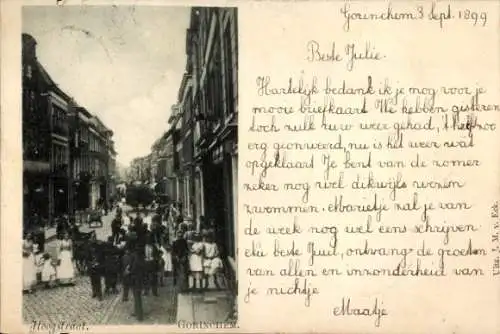 Gorinchem 3 Sept. 1899
Beste Julie.
Hartelijk bedank ik je nog voor je
mooie briefkaart We hebben gisteren
toch zulk ruw weer gehad, 't heeft zoo
erg geonweerd, nu is het weer wat
opgeklaart Je bent van de zomer
zeker nog wel dikwijls wezen
zwemmen. Marietje zal je van
de week nog wel eens schrijven
Nu beste Juul, ontvang de groeten
van allen en inzonderheid van
je nichtje
Maatje
Hoogstraat.
GORINCHEM.
Uitg. J. M. v.